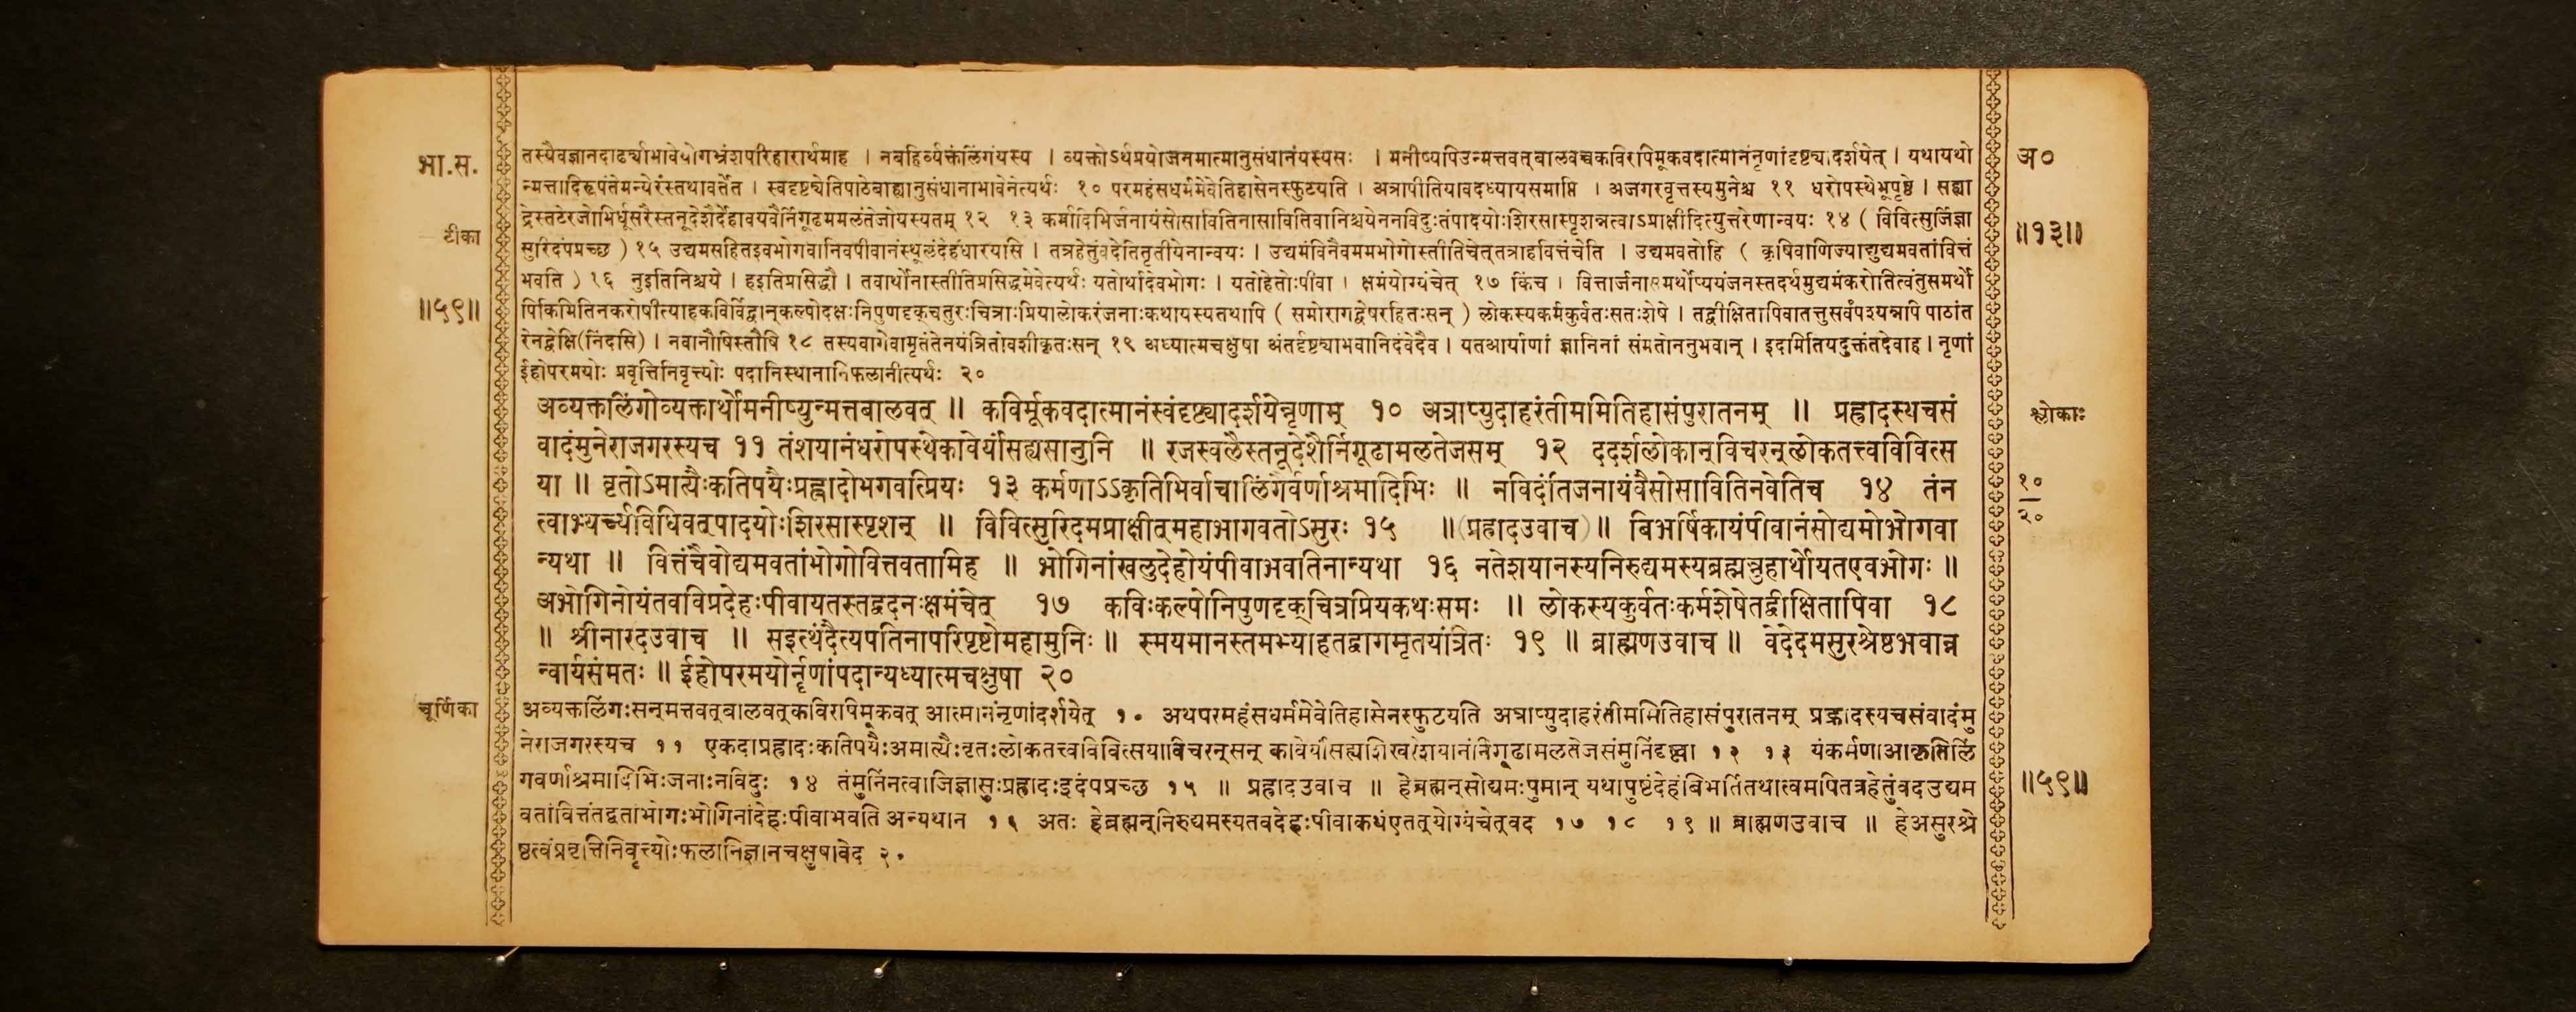 भा.स.
टीका
॥५९॥
तस्यैवज्ञानदार्ढ्याभावेयोगभ्रंशपरिहारार्थमाह । नबहिर्व्यक्तंलिंगंयस्य । व्यक्तोऽर्थप्रयोजनमात्मानुसंधानंयस्यसः । मनीष्यपिउन्मत्तवत्बालवच्चकविरपिमूकवदात्मानंनृणांदृष्ट्यादर्शयेत् । यथायथो
न्मत्तादिरूपंतेमन्येरंस्तथावर्तेत । स्वदृष्ट्येतिपाठेबाह्यानुसंधानाभावेनेत्यर्थः १० परमहंसधर्ममेवेतिहासेनस्फुटयति । अत्रापीतियावदध्यायसमाप्ति । अजगरवृत्तस्यमुनेश्च ११ धरोपस्थेभूपृष्ठे । सह्या
द्रेस्तटेरजोभिर्धूसरैस्तनूदेशैर्देहावयवैर्निगूढममलंतेजोयस्यतम् १२ १३ कर्मादिभिर्जनायंसोसावितिनासावितिवानिश्चयेननविदुःतंपादयोःशिरसास्पृशन्नत्वाऽप्राक्षीदित्युत्तरेणान्वयः १४ ( विवित्सुर्जिज्ञा
सुरिदंपप्रच्छ ) १५ उद्यमसहितइवभोगवानिवपीवानंस्थूलंदेहंधारयसि । तत्रहेतुंवदेतितृतीयेनान्वयः । उद्यमंविनैवममभोगोस्तीतिचेत्तत्राहवित्तंचेति । उद्यमवतोहि ( कृषिवाणिज्याद्युद्यमवतांवित्तं
भवति ) १६ नुइतिनिश्चये । हइतिप्रसिद्धौ । तवार्थोनास्तीतिप्रसिद्धमेवेत्यर्थः यतोर्थादेवभोगः । यतोहेतोःपीवा । क्षमंयोग्यंचेत् १७ किंच । वित्तार्जनासमर्थोप्ययंजनस्तदर्थमुद्यमंकरोतित्वंतुसमर्थो
पिकिमितिनकरोषीत्याहकविर्विद्वान्कल्पोदक्षःनिपुणदृक्चतुरःचित्राःप्रियालोकरंजनाःकथायस्यतथापि ( समोरागद्वेषरहितःसन् ) लोकस्यकर्मकुर्वतःसतःशेषे । तद्वीक्षितापिवातत्तुसर्वंपश्यन्नपि पाठांत
रेनद्वेक्षि(निंदसि) । नवानौषिस्तौषि १८ तस्यवागेवामृतंतेनयंत्रितोवशीकृतःसन् १९ अध्यात्मचक्षुषा अंतर्दृष्ट्याभवानिदंवेदैव । यतआर्याणां ज्ञानिनां संमतोननुभवान् । इदमितियदुक्तंतदेवाह । नृणां
ईहोपरमयोः प्रवृत्तिनिवृत्त्योः पदानिस्थानानिफलानीत्यर्थः २०
अव्यक्तलिंगोव्यक्तार्थोमनीष्युन्मत्तबालवत् ॥ कविर्मूकवदात्मानंस्वंदृष्ट्यादर्शयेन्नृणाम् १० अत्राप्युदाहरंतीममितिहासंपुरातनम् ॥ प्रह्रादस्यचसं
वादंमुनेराजगरस्यच ११ तंशयानंधरोपस्थेकावेर्यांसह्यसानुनि ॥ रजस्वलैस्तनूदेशैर्निगूढामलतेजसम् १२ ददर्शलोकान्विचरन्लोकतत्त्वविवित्स
या ॥ वृतोऽमात्यैःकतिपयैःप्रह्लादोभगवत्प्रियः १३ कर्मणाऽऽकृतिभिर्वाचालिंगैर्वर्णाश्रमादिभिः ॥ नविदंतिजनायंवैसोसावितिनवेतिच १४ तंन
त्वाभ्यर्च्यविधिवत्पादयोःशिरसास्पृशन् ॥ विवित्सुरिदमप्राक्षीत्महाभागवतोऽसुरः १५ ॥(प्रह्रादउवाच)॥ बिभर्षिकायंपीवानंसोद्यमोभोगवा
न्यथा ॥ वित्तंचैवोद्यमवतांभोगोवित्तवतामिह ॥ भोगिनांखलुदेहोयंपीवाभवतिनान्यथा १६ नतेशयानस्यनिरुद्यमस्यब्रह्मन्नुहार्थोयतएवभोगः ॥
अभोगिनोयंतवविप्रदेहःपीवायतस्तद्वदनःक्षमंचेत् १७ कविःकल्पोनिपुणदृक्चित्रप्रियकथःसमः ॥ लोकस्यकुर्वतःकर्मशेषेतद्वीक्षितापिवा १८
॥ श्रीनारदउवाच ॥ सइत्थंदैत्यपतिनापरिपृष्टोमहामुनिः ॥ स्मयमानस्तमभ्याहतद्वागमृतयंत्रितः १९ ॥ ब्राह्मणउवाच ॥ वेदेदमसुरश्रेष्ठभवान्न
न्वार्यसंमतः ॥ ईहोपरमयोर्नॄणांपदान्यध्यात्मचक्षुषा २०
चूर्णिका
अव्यक्तलिंगःसन्मत्तवत्बालवत्कविरपिमूकवत् आत्मानंनृणांदर्शयेत् १० अथपरमहंसधर्ममेवेतिहासेनस्फुटयति अत्राप्युदाहरंतीममितिहासंपुरातनम् प्रह्लादस्यचसंवादंमु
नेराजगरस्यच ११ एकदाप्रह्रादःकतिपयैःअमात्यैःवृतःलोकतत्त्वविवित्सयाविचरन्सन् कावेर्यांसह्यशिखरेशयानंनिगूढामलतेजसंमुनिंदृष्ट्वा १२ १३ यंकर्मणाआकृतिलिं
गवर्णाश्रमादिभिःजनाःनविदुः १४ तंमुनिंनत्वाजिज्ञासुःप्रह्लादःइदंपप्रच्छ १५ ॥ प्रह्रादउवाच ॥ हेब्रह्मन्सोद्यमःपुमान् यथापुष्टंदेहंबिभर्तितथात्वमपितत्रहेतुंवदउद्यम
वतांवित्तंतद्वतांभोगःभोगिनांदेहःपीवाभवति अन्यथान १६ अतः हेब्रह्मन्निरुद्यमस्यतवदेहःपीवाकथंएतत्योग्यंचेत्वद १७ १८ १९ ॥ ब्राह्मणउवाच ॥ हेअसुरश्रे
ष्ठत्वंप्रवृत्तिनिवृत्त्योःफलानिज्ञानचक्षुषावेद २०
अ०
॥१३॥
श्लोकाः
१०
२०
॥५९॥